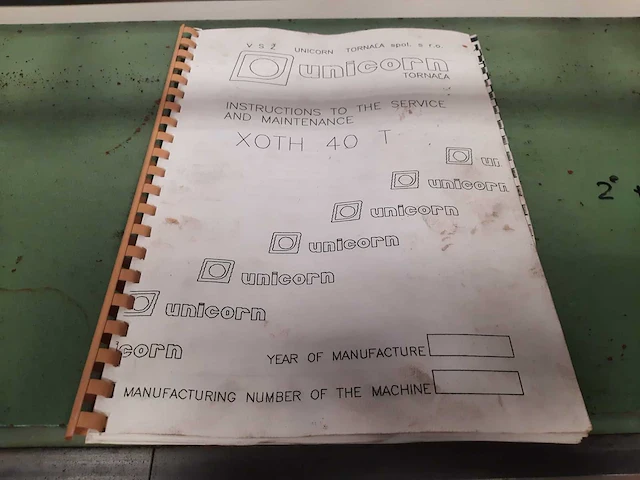 VSŽ UNICORN TORNAĽA spol. s r.o.
unicorn
TORNAĽA
INSTRUCTIONS TO THE SERVICE
AND MAINTENANCE
XOTH 40 T
un
unicorn
unicorn
unicorn
unicorn
unicorn
corn
YEAR OF MANUFACTURE
MANUFACTURING NUMBER OF THE MACHINE
2°